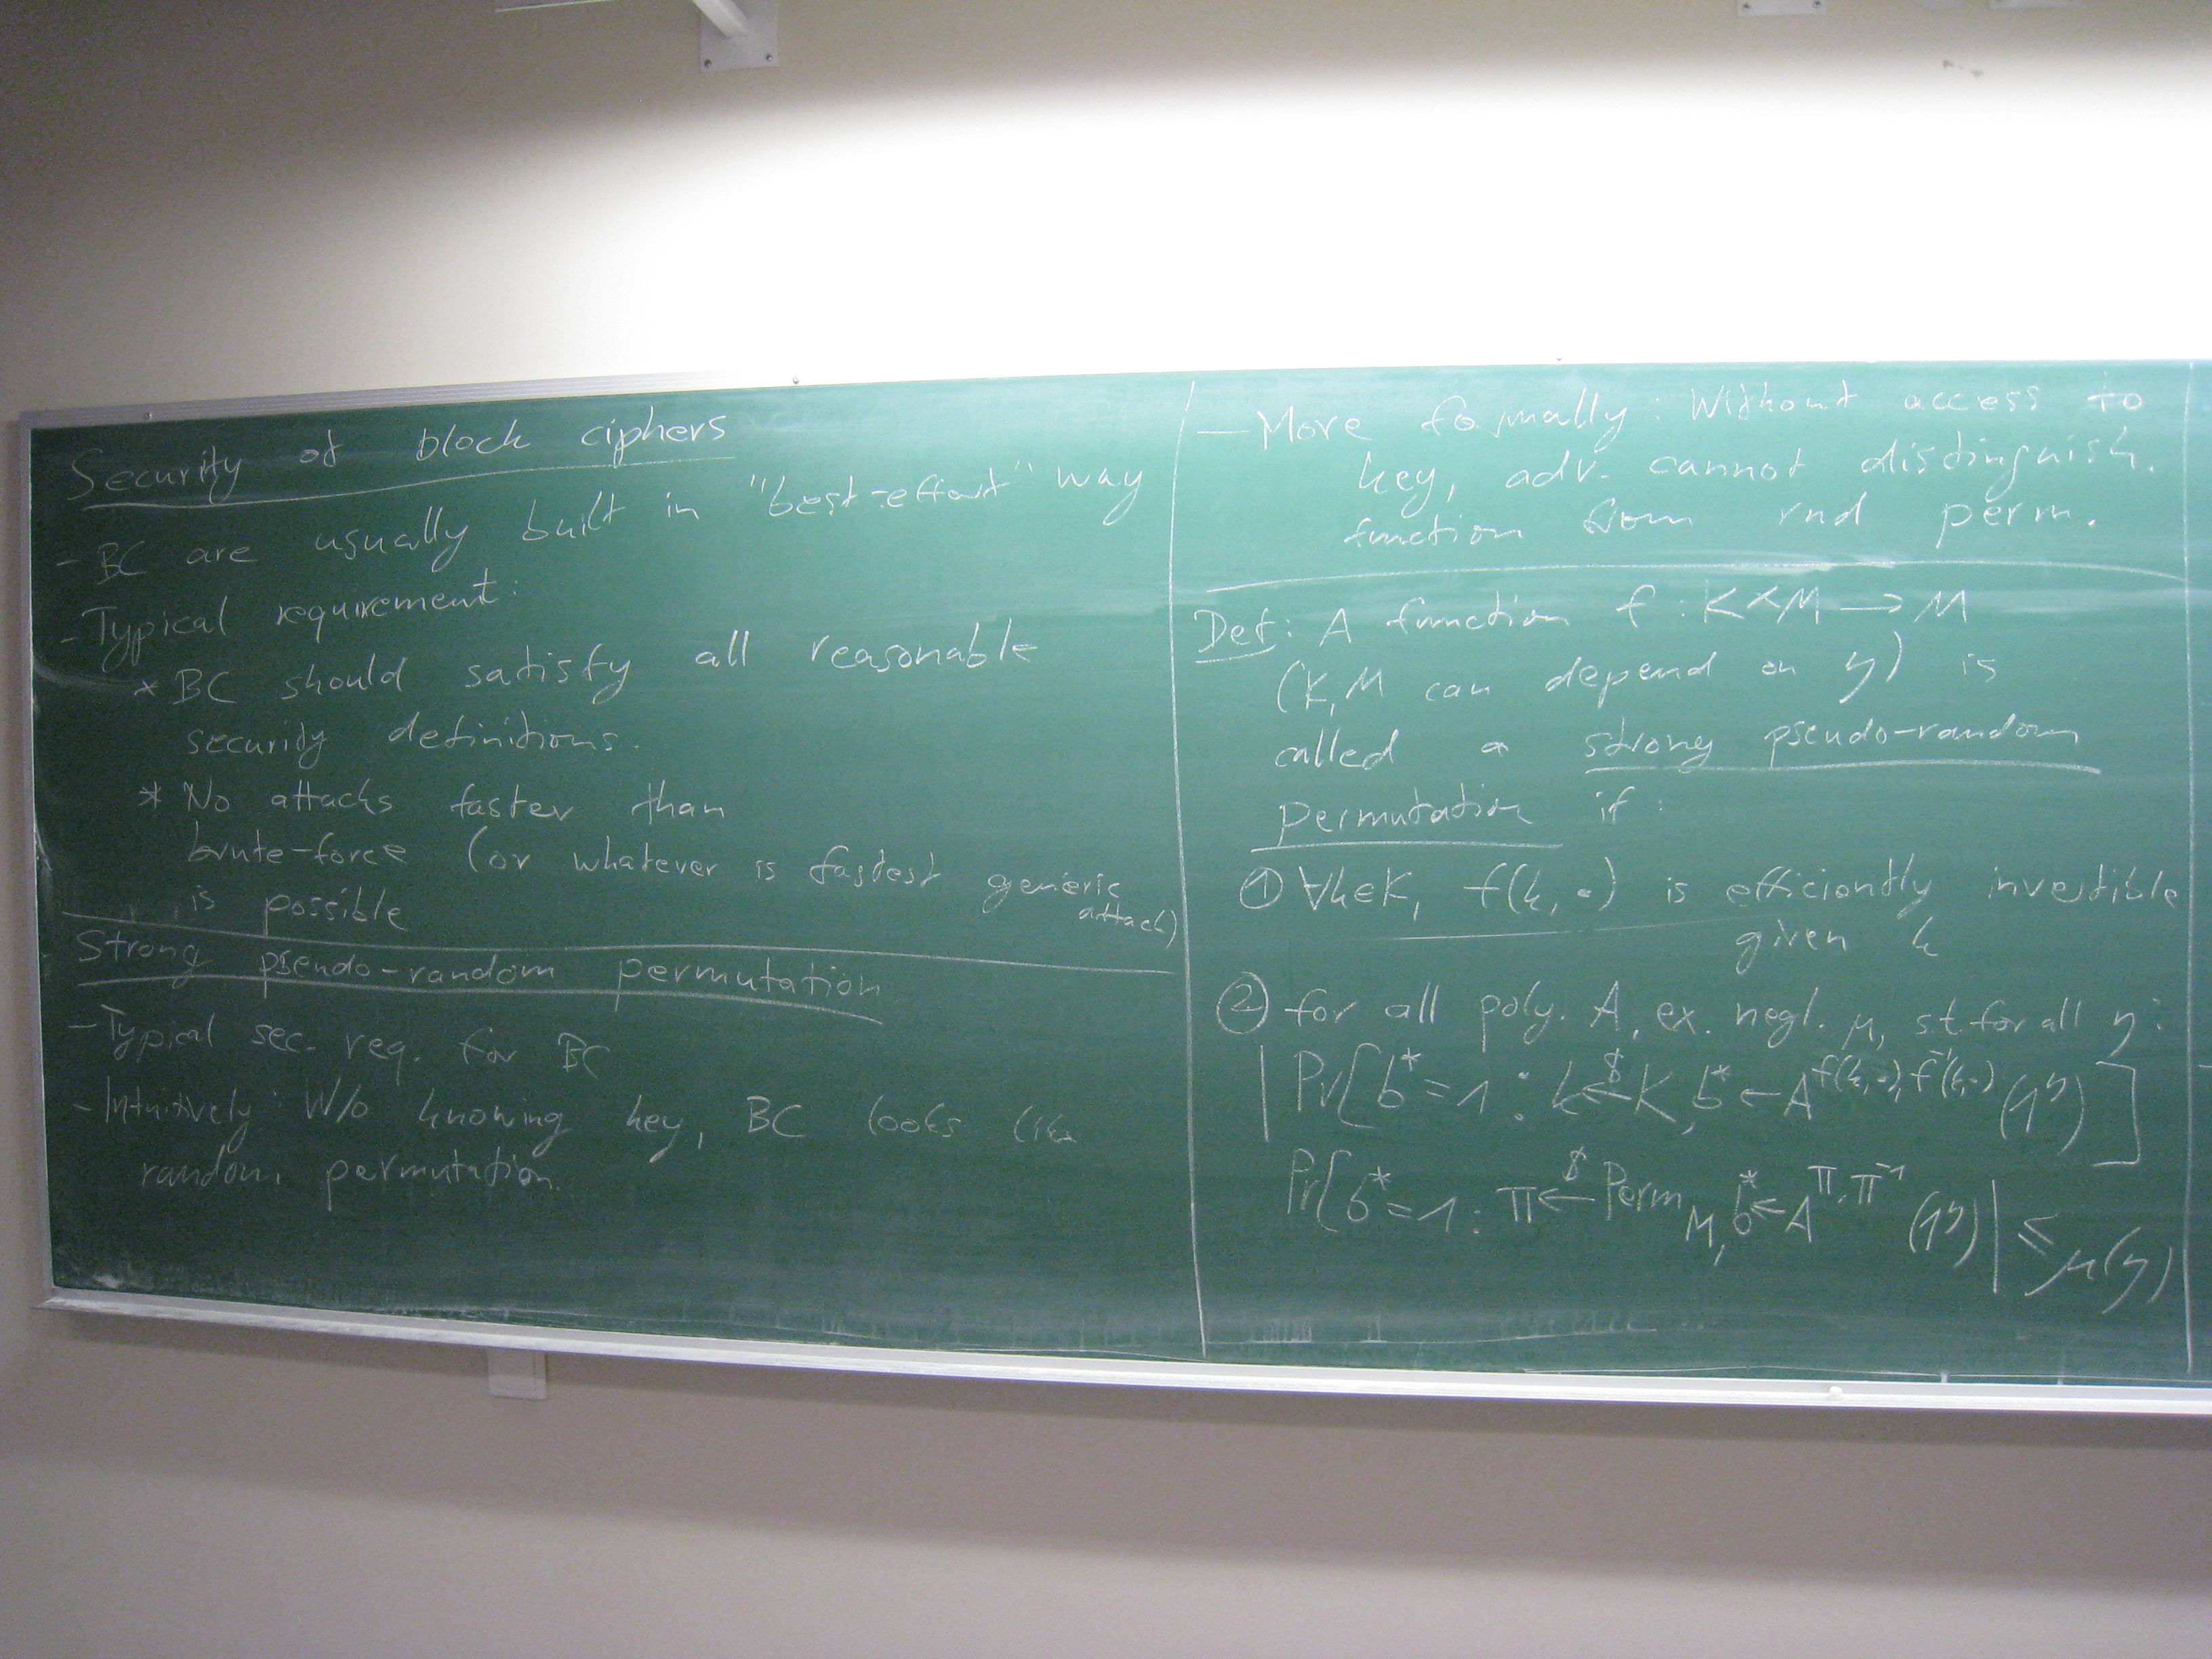 Security of block ciphers
- BC are usually built in "best-effort" way
- Typical requirement:
* BC should satisfy all reasonable
security definitions.
* No attacks faster than
brute-force (or whatever is fastest generic
attack)
is possible
Strong pseudo-random permutation
- Typical sec. req. for BC
- Intuitively: W/o knowing key, BC looks like
random permutation.
- More formally: Without access to
key, adv. cannot distinguish.
function from rnd perm.
Def: A function f: K×M → M
(K, M can depend on η) is
called a strong pseudo-random
permutation if:
① ∀k∈K, f(k, •) is efficiently invertible
given k
② for all poly. A, ex. negl. μ, s.t. for all η:
| Pr[b* = 1 : k ←$ K, b* ← A^{f(k,·), f⁻¹(k,·)} (1^η)]
Pr[b* = 1 : π ←$ Perm_M, b* ← A^{π, π⁻¹} (1^η)| ≤ μ(η)